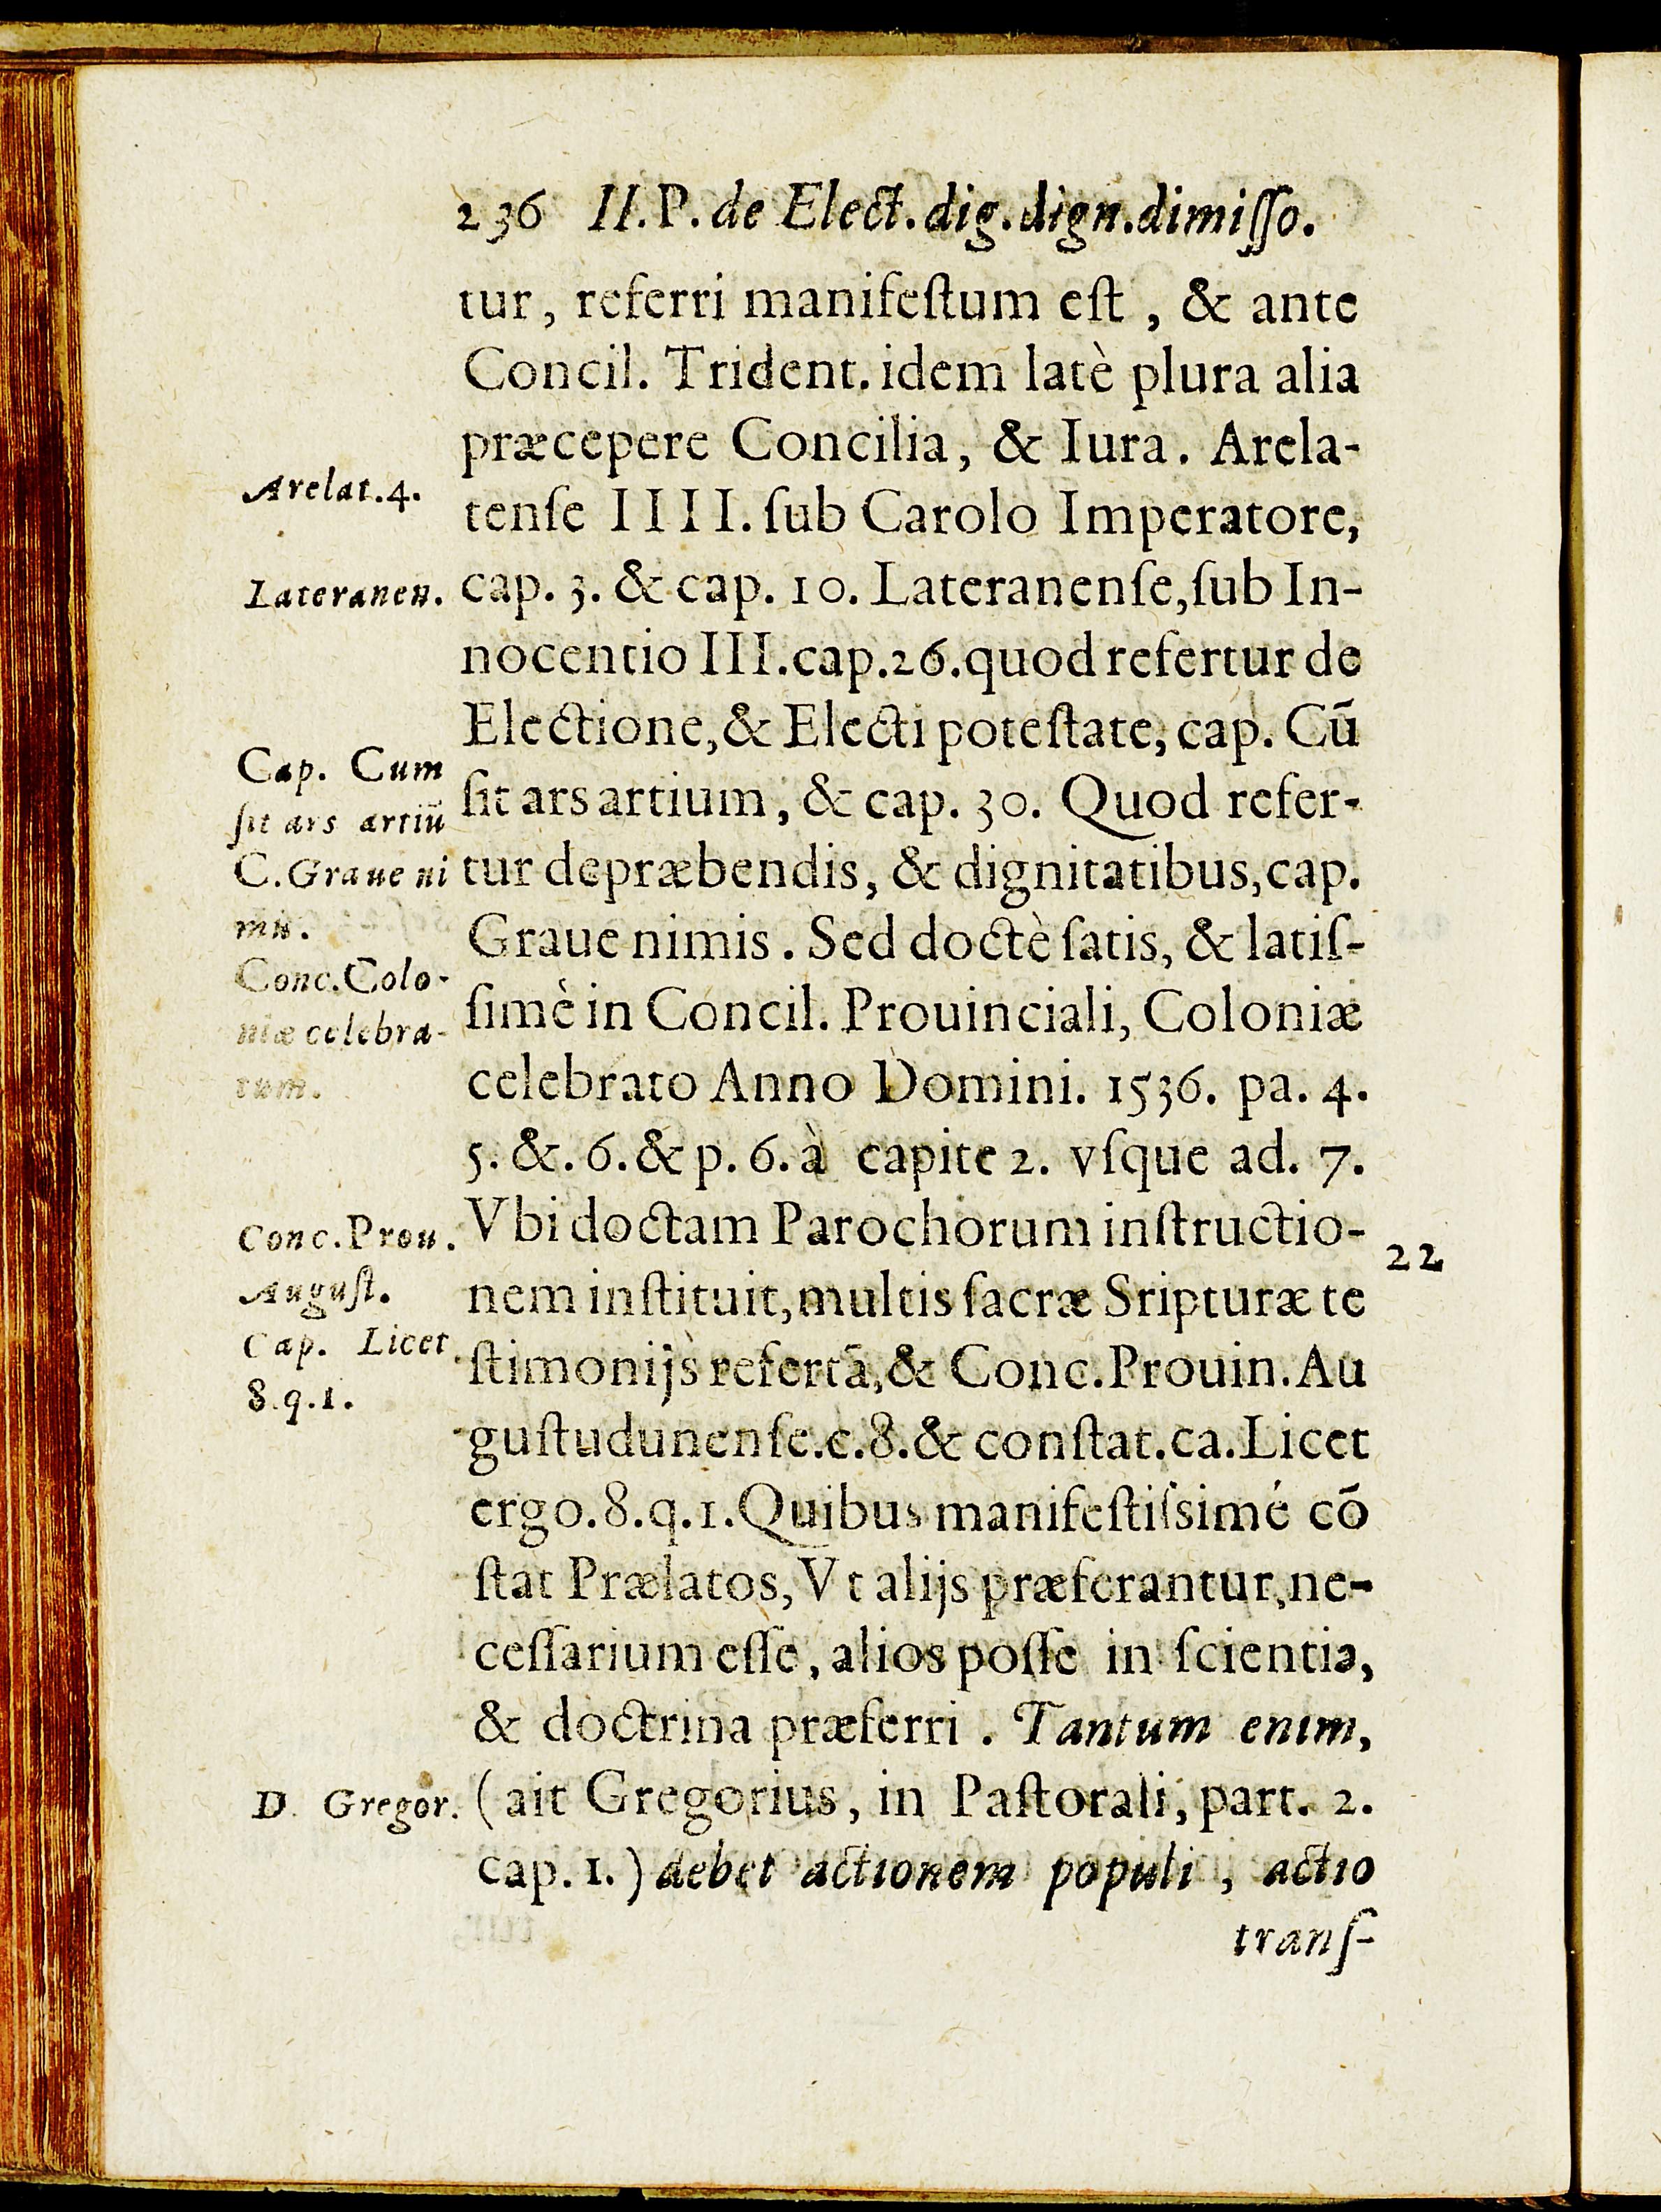 236 II.P. de Elect. dig. dign. dimiſſo.
tur, referri manifeſtum eſt, & ante
Concil. Trident. idem latè plura alia
præcepere Concilia, & Iura. Arela-
Arelat.4.
tenſe IIII. ſub Carolo Imperatore,
Lateranen.
cap. 3. & cap. 10. Lateranenſe, ſub In-
nocentio III. cap. 26. quod refertur de
Electione, & Electi poteſtate, cap. Cū
Cap. Cum
ſit ars artiū
C. Graue ni
mis.
Conc. Colo-
niæ celebra-
tum.
ſit ars artium, & cap. 30. Quod refer-
tur depræbendis, & dignitatibus, cap.
Graue nimis. Sed doctè ſatis, & latiſ-
ſimè in Concil. Prouinciali, Coloniæ
celebrato Anno Domini. 1536. pa. 4.
5. &. 6. & p. 6. à capite 2. vſque ad. 7.
Conc. Prou.
Auguſt.
Cap. Licet
8.q.1.
Vbi doctam Parochorum inſtructio-
22
nem inſtituit, multis ſacræ Sripturæ te
ſtimonijs refertā, & Conc. Prouin. Au
guſtudunenſe. c. 8. & conſtat. ca. Licet
ergo. 8. q. 1. Quibus manifeſtiſsimé cō
ſtat Prælatos, Vt alijs præferantur, ne-
ceſſarium eſſe, alios poſſe in ſcientia,
& doctrina præferri. Tantum enim,
D. Gregor.
(ait Gregorius, in Paſtorali, part. 2.
cap. 1.) debet actionem populi, actio
tranſ-